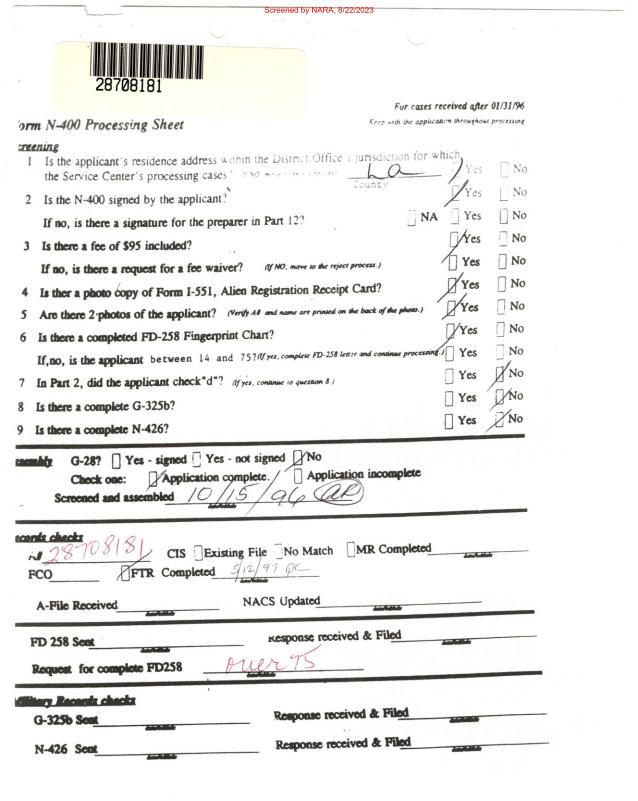 Screened by NARA, 8/22/2023
28708181
For cases received after 01/31/96
orm N-400 Processing Sheet
Keep with the application throughout processing
reening
1 Is the applicant's residence address within the District Office's jurisdiction for which
the Service Center's processing cases? La Yes No
County
2 Is the N-400 signed by the applicant? Yes No
If no, is there a signature for the preparer in Part 12? NA Yes No
3 Is there a fee of $95 included? Yes No
If no, is there a request for a fee waiver? (If NO, move to the reject process.) Yes No
4 Is ther a photo copy of Form I-551, Alien Registration Receipt Card? Yes No
5 Are there 2 photos of the applicant? (Verify A# and name are printed on the back of the photo.) Yes No
6 Is there a completed FD-258 Fingerprint Chart? Yes No
If,no, is the applicant between 14 and 75? (If yes, complete FD-258 letter and continue processing.) Yes No
7 In Part 2, did the applicant check "d"? (If yes, continue to question 8.) Yes No
8 Is there a complete G-325b? Yes No
9 Is there a complete N-426? Yes No
G-28? Yes - signed Yes - not signed No
Check one: Application complete. Application incomplete
Screened and assembled 10/15/96 QR
ecords checks
A# 28708181 CIS Existing File No Match MR Completed
FCO FTR Completed 5/12/97 QC
A-File Received NACS Updated
FD 258 Sent Response received & Filed
Request for complete FD258 Over 75
ilitary Records checks
G-325b Sent Response received & Filed
N-426 Sent Response received & Filed